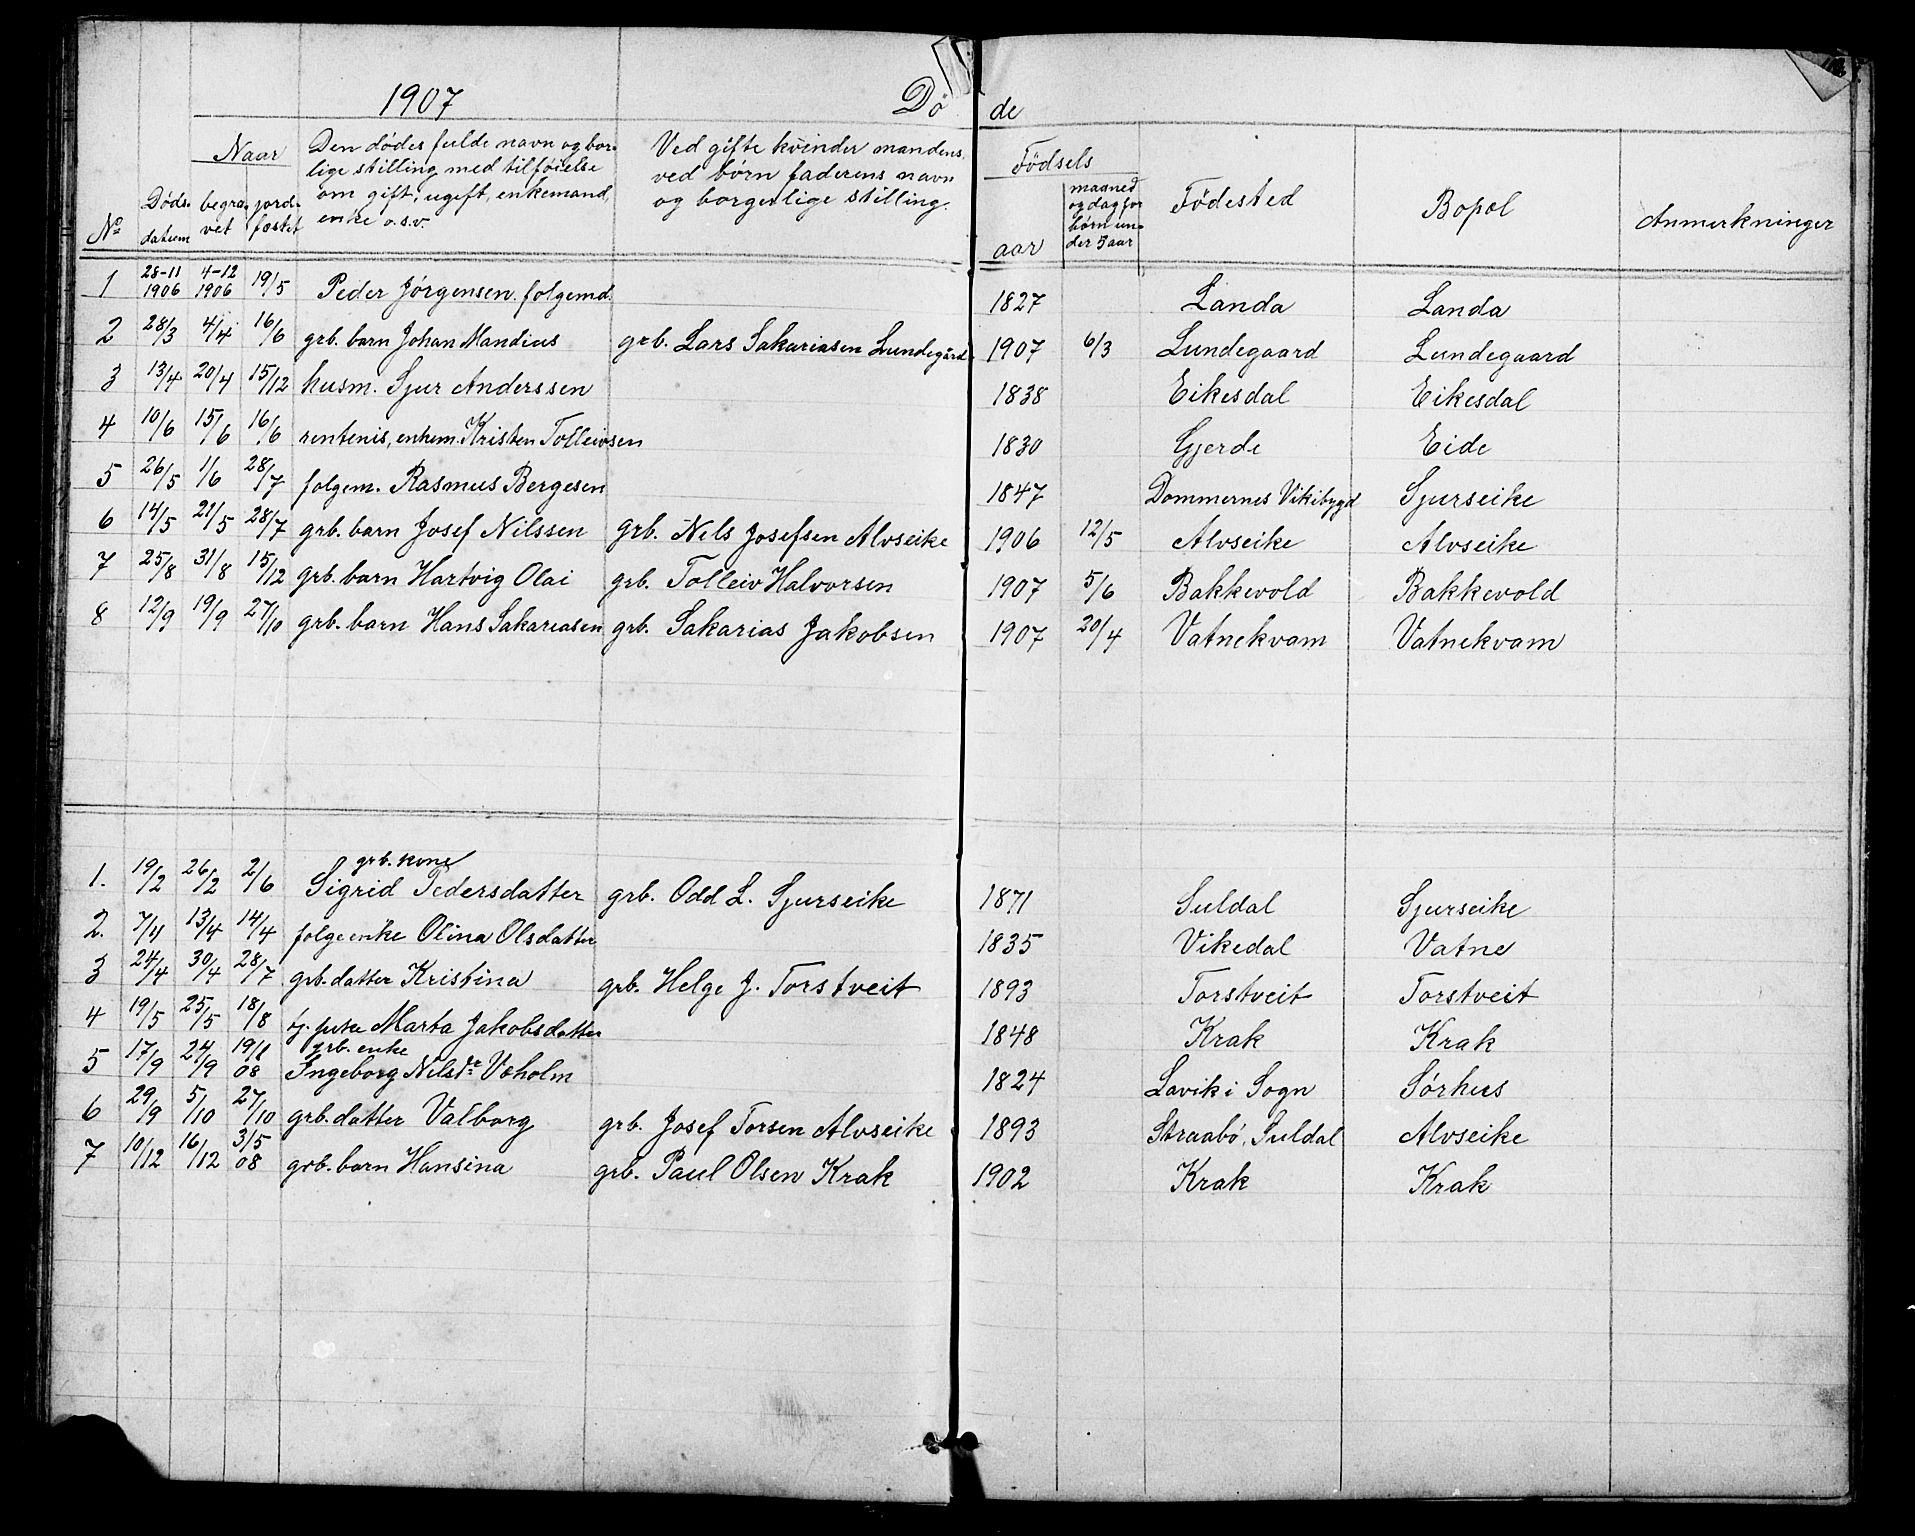 1907 Dø de
Naar
Den dødes fulde navn og bor-
lige stilling med tilføielse
om gift, ugift, enkemand,
enke o.s.v.
Ved gifte kvinder mandens,
ved børn faderens navn
og borgerlige stilling.
Fødsels
Fødested Bopæl Anmerkninger
No Døds-datum begra-vet jord-fæstet
aar maaned og dag for børn un-der 5 aar
1 28-11 1906 4-12 1906 19/5 Peder Jørgensen folgemd. 1827 Landa Landa
2 28/3 4/4 16/6 grb. barn Johan Mandius grb. Lars Sakariasen Lundegård 1907 6/3 Lundegaard Lundegaard
3 13/4 20/4 15/12 husm. Sjur Anderssen 1838 Eikesdal Eikesdal
4 10/6 15/6 16/6 rentenis, enkem. Kristen Tolleivsen 1830 Gjerde Eide
5 26/5 1/6 28/7 folgem. Rasmus Bergesen 1847 Dommernes Vikibygd Sjurseike
6 14/5 21/5 28/7 grb. barn Josef Nilssen grb. Nels Josefsen Alvseike 1906 12/5 Alvseike Alvseike
7 25/8 31/8 15/12 grb. barn Hartvig Olai grb. Tolleiv Halvorsen 1907 5/6 Bakkevold Bakkevold
8 12/9 19/9 27/10 grb. barn Hans Sakariasen grb. Sakarias Jakobsen 1907 20/4 Vatnekvam Vatnekvam
grb. kone
1. 19/2 26/2 2/6 Sigrid Pedersdatter grb. Odd L. Sjurseike 1871 Suldal Sjurseike
2. 7/4 13/4 14/4 folgeenke Olina Olsdatter 1835 Vikedal Vatne
3 24/4 30/4 28/7 grb. datter Kristina grb. Helge J. Torstveit 1893 Torstveit Torstveit
4 19/5 25/5 18/8 Marta Jakobsdatter 1848 Krak Krak
grb. enke
5 17/9 24/9 08 Ingeborg Nilsdr Væholm 1824 Lavik i Sogn Sørhus
6 29/9 5/10 27/10 grb. datter Valborg grb. Josef Torsen Alvseike 1893 Straabø, Suldal Alvseike
7 10/12 16/12 3/5 08 grb. barn Hansina grb. Paul Olsen Krak 1902 Krak Krak